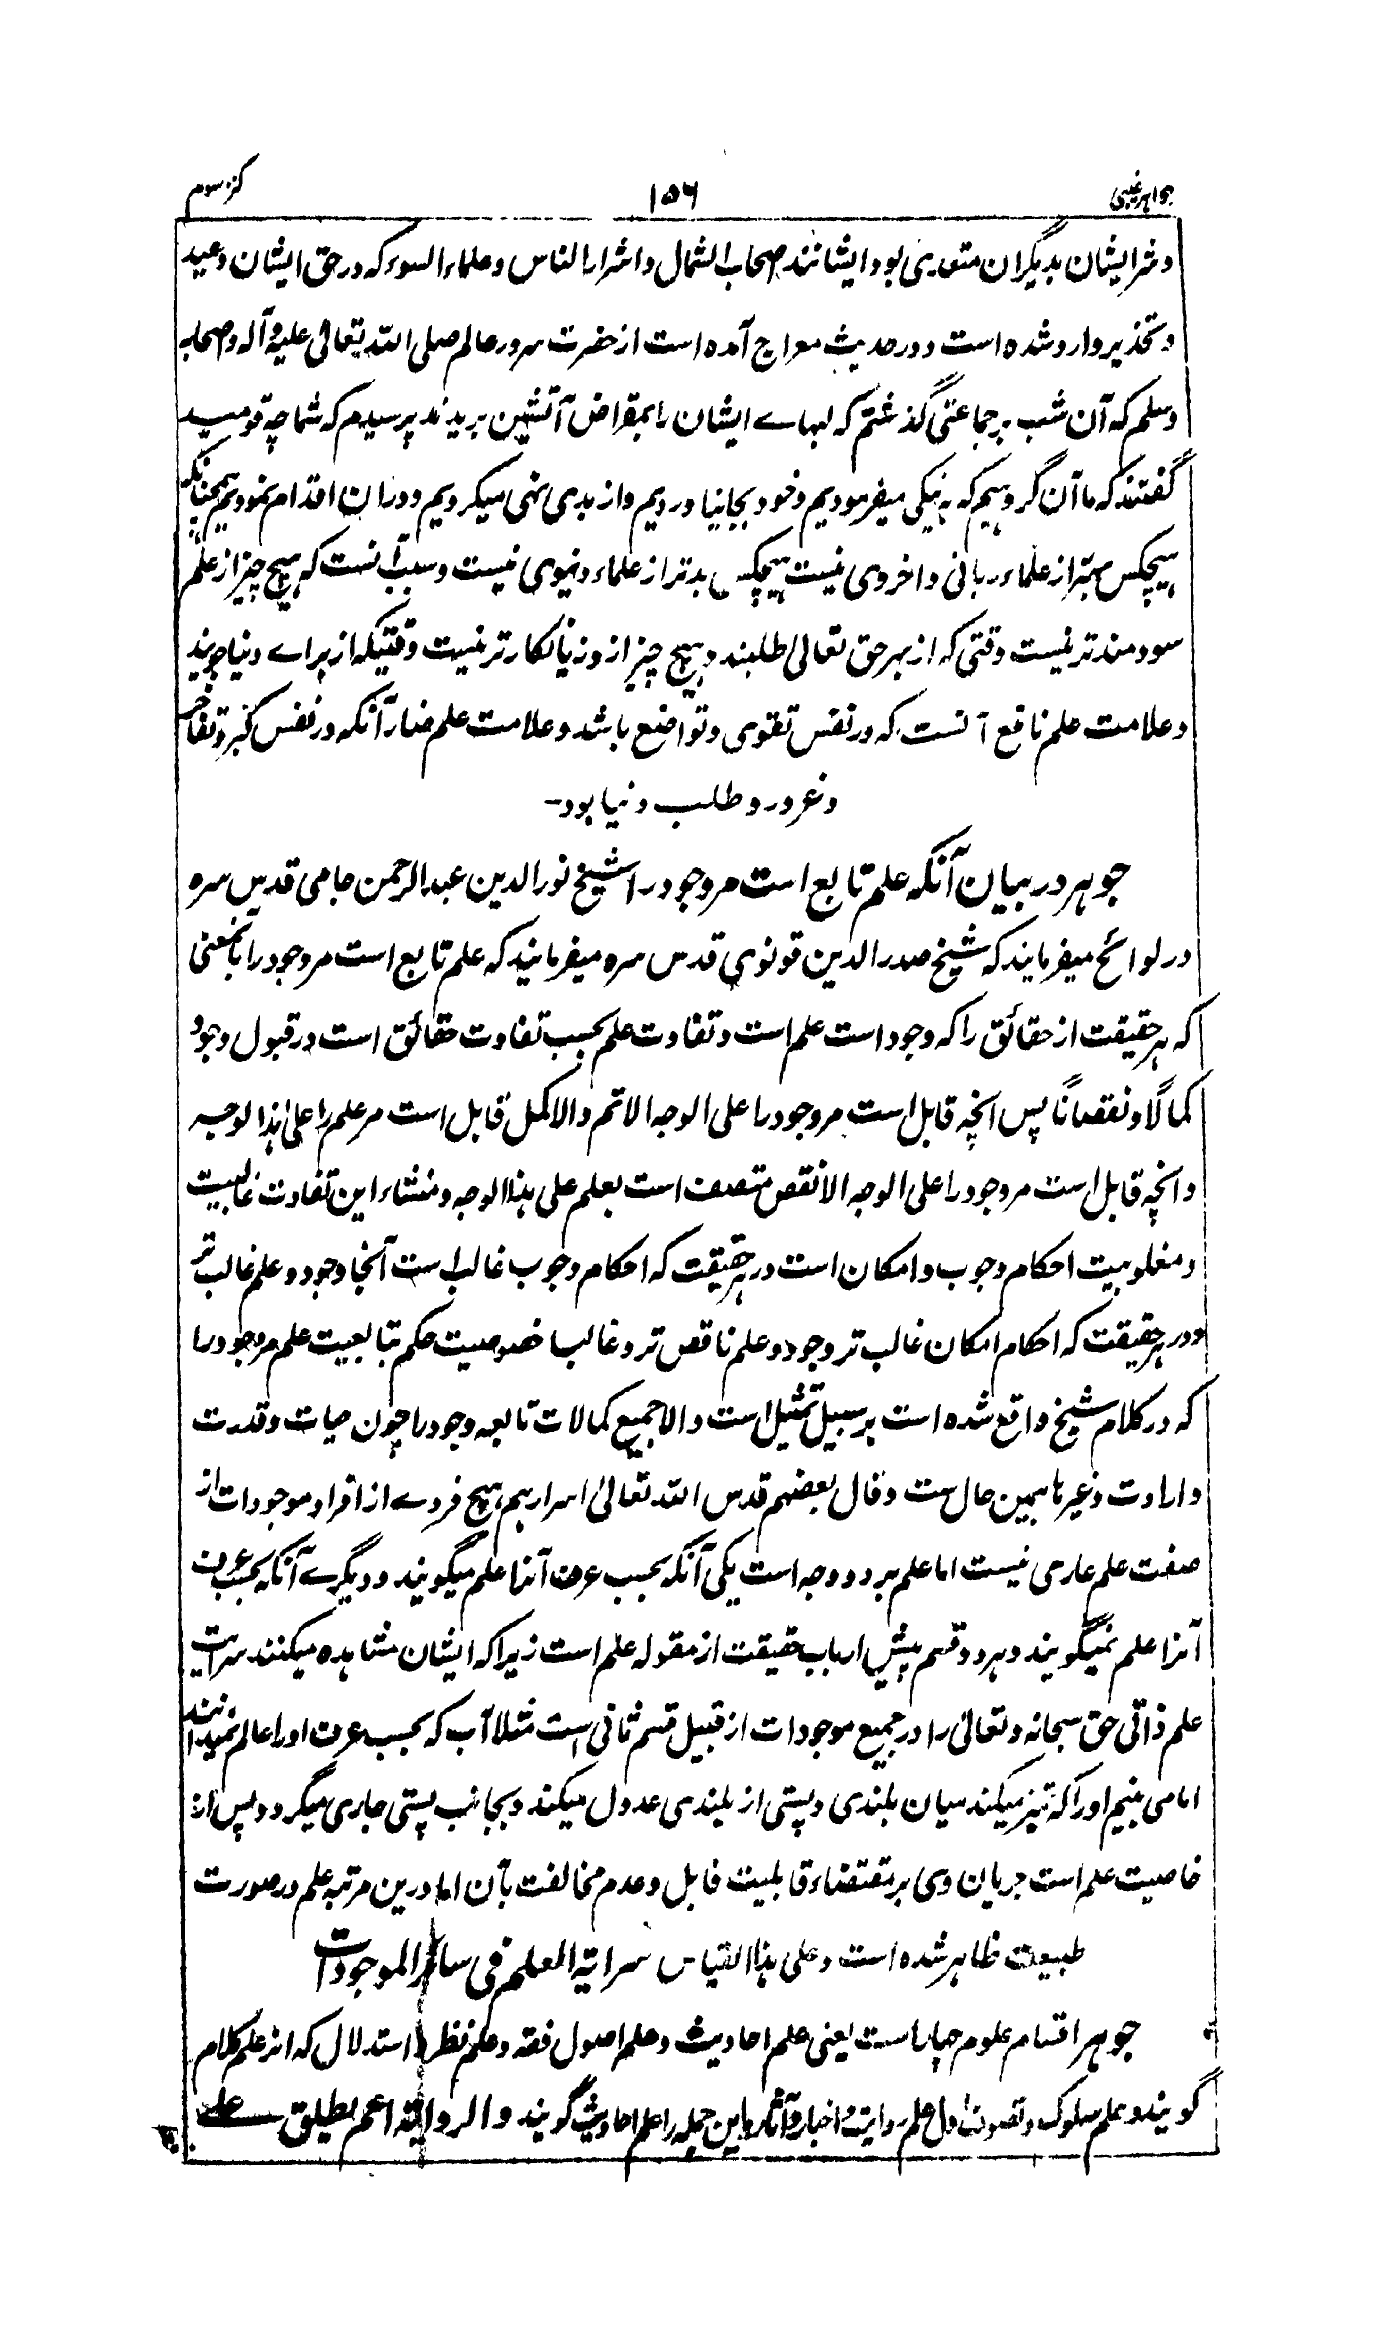 جواہر غیبی ۱۵۶ کنز سوم
و شر ایشان بدیگران متعدی بود و ایشانند صحاب الشمال و اشرار الناس و علماء السوء که در حق ایشان وعید
و تحذیر وارد شده است و در حدیث معراج آمده است از حضرت سرور عالم صلی اللہ تعالی علیہ و آلہ و صحابہ
و سلم که آن شب بر جماعتی گذشتم که لبہاے ایشان را بمقراض آتشین بریدند پرسیدم که شما چہ قومید
گفتند که ما آن گروہیم که بہ نیکی میفرمودیم و خود بجا نیاوردیم و از بدی نہی میکردیم و در ان اقدام نمودیم ہمچنانکہ
ہیچکس بہتر از علماء ربانی و اخروی نیست ہیچکس بدتر از علماء دنیوی نیست و سبب آنست کہ ہیچ چیز از علم
سودمندتر نیست وقتی که از بہر حق تعالی طلبند و ہیچ چیز از و زیانکارتر نیست وقتیکہ از براے دنیا جویند
و علامت علم نافع آنست کہ در نفس تقوی و تواضع باشد و علامت علم ضار آنکہ در نفس کبر و تفاخر
و غرور و طلب دنیا بود–
جوہر در بیان آنکہ علم تابع است مر وجود را شیخ نور الدین عبد الرحمن جامی قدس سرہ
در لوائح میفرمایند کہ شیخ صدر الدین قونوی قدس سرہ میفرمایند کہ علم تابع است مر وجود را بآنمعنی
کہ ہر حقیقت از حقائق را کہ وجود است علم است و تفاوت علم بحسب تفاوت حقائق است در قبول وجود
کمالًا و نقصانًا پس انچہ قابل است مر وجود را علی الوجہ الاتم والاکمل قابل است مر علم را علی ہذا الوجہ
و انچہ قابل است مر وجود را علی الوجہ الانقص متصف است بعلم علی ہذا الوجہ و منشاء این تفاوت غالبیت
و مغلوبیت احکام وجوب و امکان است در ہر حقیقت کہ احکام وجوب غالب است آنجا وجود و علم غالب تر
و در ہر حقیقت کہ احکام امکان غالب تر وجود و علم ناقص تر و غالبا خصوصیت حکم بتابعیت علم مر وجود را
کہ در کلام شیخ واقع شدہ است بر سبیل تمثیل است والا جمیع کمالات تابعہ وجود را چون حیات و قدرت
و ارادت و غیرہا ہمین حال ست و قال بعضہم قدس اللہ تعالیٰ اسرارہم ہیچ فردے از افراد موجودات از
صفت علم عاری نیست اما علم بر دو وجہ است یکی آنکہ بحسب عرف آنرا علم میگویند و دیگرے آنکہ بحسب عرف
آنرا علم نمیگویند و ہر دو قسم پیش ارباب حقیقت از مقولہ علم است زیرا کہ ایشان مشاہدہ میکنند سرایت
علم ذاتی حق سبحانہ و تعالیٰ را در جمیع موجودات از قبیل قسم ثانی است مثلا آب کہ بحسب عرف او را عالم نمیدانند
اما می بینیم او را کہ تمیز میکند میان بلندی و پستی از بلندی عدول میکند و بجانب پستی جاری میگردد پس از
خاصیت علم است جریان وی بر مقتضاء قابلیت قابل و عدم مخالفت بآن اما درین مرتبہ علم در صورت
طبیعت ظاہر شدہ است و علی ہذا القیاس سرایة العلم فی سائر الموجودات
جوہر اقسام علوم چہار است یعنی علم احادیث و علم اصول فقہ و علم نظر و استدلال کہ انرا علم کلام
گویند و علم سلوک و تصوف اول علم روایت و اخبار و آثار و این جملہ را علم احادیث گویند والروایة اعم یطلق علی